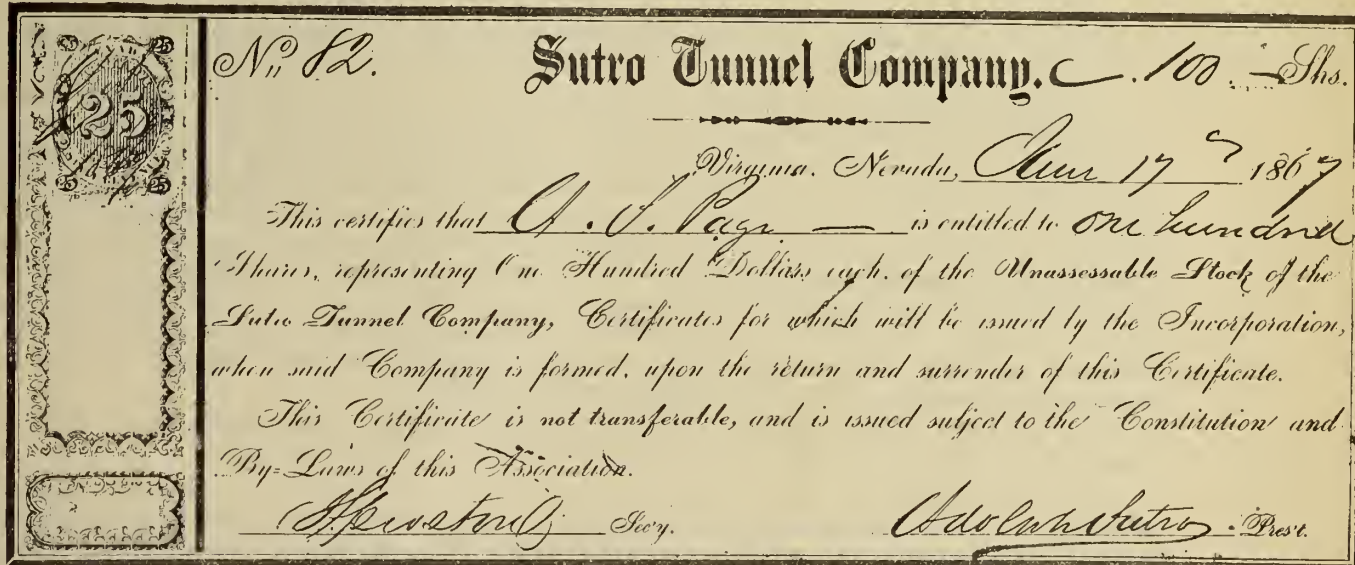 25
25 25
25 25
No. 82. Sutro Tunnel Company. 100. Shs.
Virginia. Nevada, June 17 1867
This certifies that A. S. Page is entitled to One hundred
Shares, representing One Hundred Dollars each. of the Unassessable Stock of the
Sutro Tunnel Company, Certificates for which will be issued by the Incorporation,
when said Company is formed, upon the return and surrender of this Certificate.
This Certificate is not transferable, and is issued subject to the Constitution and
By=Laws of this Association.
Secy. Adolph Sutro Pres't.